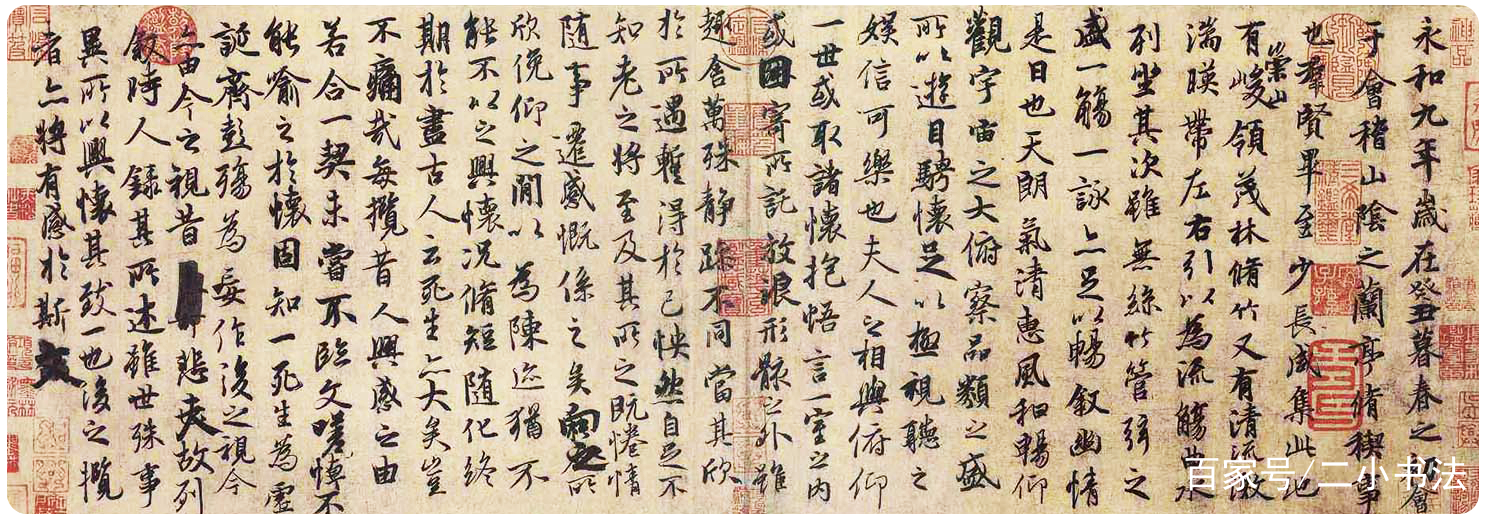 永和九年歲在癸丑暮春之初會
于會稽山陰之蘭亭脩稧事
也羣賢畢至少長咸集此地
有崇山峻領茂林脩竹又有清流激
湍暎帶左右引以為流觴曲水
列坐其次雖無絲竹管弦之
盛一觴一詠亦足以暢叙幽情
是日也天朗氣清惠風和暢仰
觀宇宙之大俯察品類之盛
所以遊目騁懷足以極視聽之
娛信可樂也夫人之相與俯仰
一世或取諸懷抱悟言一室之內
或因寄所託放浪形骸之外雖
趣舍萬殊静躁不同當其欣
於所遇蹔得於己怏然自足不
知老之將至及其所之既惓情
隨事遷感慨係之矣向之所
欣俛仰之閒以為陳迹猶不
能不以之興懷況脩短隨化終
期於盡古人云死生亦大矣豈
不痛哉每攬昔人興感之由
若合一契未嘗不臨文嗟悼不
能喻之於懷固知一死生為虛
誕齊彭殤為妄作後之視今
亦由今之視昔悲夫故列
叙時人錄其所述雖世殊事
異所以興懷其致一也後之攬
者亦將有感於斯文
百家号/二小书法